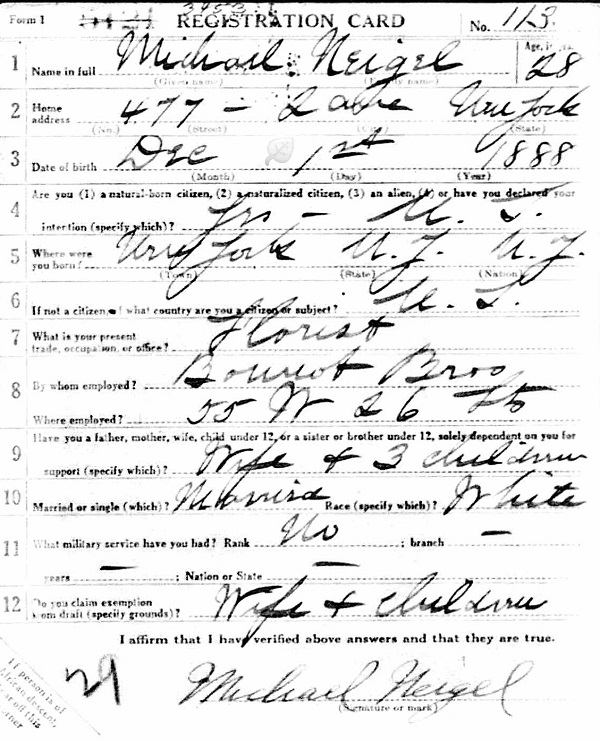 Form 1 3953 REGISTRATION CARD No. 113
1 Name in full Michael Neigel Age, in yrs. 28
(Given name) (Family name)
2 Home address 477 - 2 ave New York
(No.) (Street) (City) (State)
3 Date of birth Dec 1st 1888
(Month) (Day) (Year)
Are you (1) a natural-born citizen, (2) a naturalized citizen, (3) an alien, (4) or have you declared your
4 intention (specify which)? Yes - U. S.
5 Where were you born? New York N. Y. U. S.
(Town) (State) (Nation)
6 If not a citizen, of what country are you a citizen or subject? U. S.
7 What is your present trade, occupation, or office? Florist
8 By whom employed? Bros
Where employed? 55 W 26 St
Have you a father, mother, wife, child under 12, or a sister or brother under 12, solely dependent on you for
9 support (specify which)? Wife + 3 children
10 Married or single (which)? Married Race (specify which)? White
11 What military service have you had? Rank No ; branch —
years — ; Nation or State —
12 Do you claim exemption from draft (specify grounds)? Wife + children
I affirm that I have verified above answers and that they are true.
29 Michael Neigel
(Signature or mark)
If person is of
African descent,
tear off this
corner